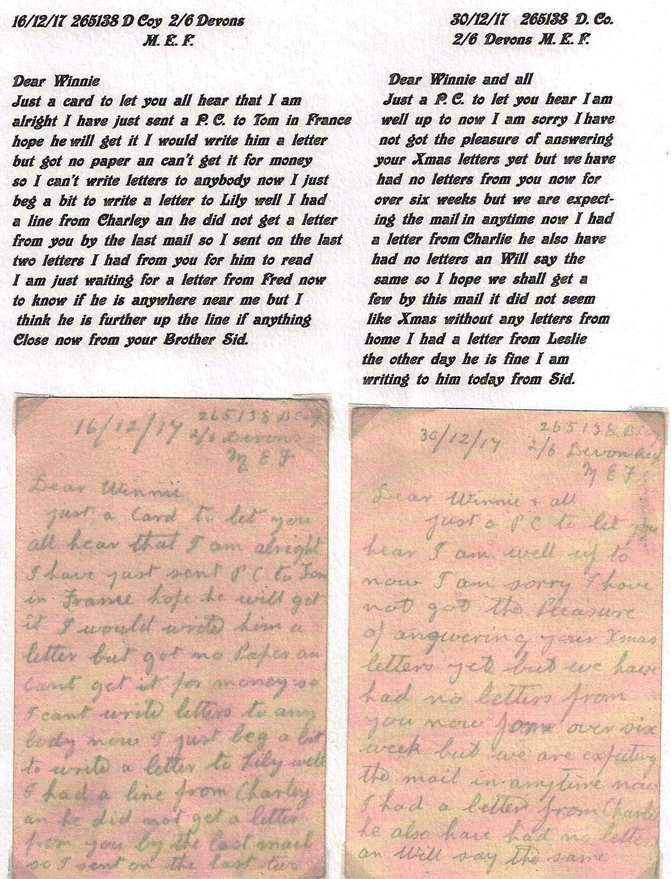 16/12/17 265138 D Coy 2/6 Devons
M. E. F.
Dear Winnie
Just a card to let you all hear that I am
alright I have just sent a P. C. to Tom in France
hope he will get it I would write him a letter
but got no paper an can't get it for money
so I can't write letters to anybody now I just
beg a bit to write a letter to Lily well I had
a line from Charley an he did not get a letter
from you by the last mail so I sent on the last
two letters I had from you for him to read
I am just waiting for a letter from Fred now
to know if he is anywhere near me but I
think he is further up the line if anything
Close now from your Brother Sid.
30/12/17 265138 D. Co.
2/6 Devons M. E. F.
Dear Winnie and all
Just a P. C. to let you hear I am
well up to now I am sorry I have
not got the pleasure of answering
your Xmas letters yet but we have
had no letters from you now for
over six weeks but we are expect-
ing the mail in anytime now I had
a letter from Charlie he also have
had no letters an Will say the
same so I hope we shall get a
few by this mail it did not seem
like Xmas without any letters from
home I had a letter from Leslie
the other day he is fine I am
writing to him today from Sid.
16/12/17 265138 D.Coy
2/6 Devons
M E F
Dear Winnie
just a Card to let you
all hear that I am alright
I have just sent P C to Tom
in France hope he will get
it I would write him a
letter but got no Paper an
cant get it for money so
I cant write letters to any
body now I just beg a bit
to write a letter to Lily well
I had a line from Charley
an he did not get a letter
from you by the last mail
so I sent on the last two
30/12/17 265138 D.Coy
2/6 Devon Reg
M E F
Dear Winnie + all
just a P C to let you
hear I am well up to
now I am sorry I have
not got the Pleasure
of answering your Xmas
letters yet but we have
had no letters from
you now for over six
week but we are expecting
the mail in anytime now
I had a letter from Charlie
he also have had no letters
an Will say the same